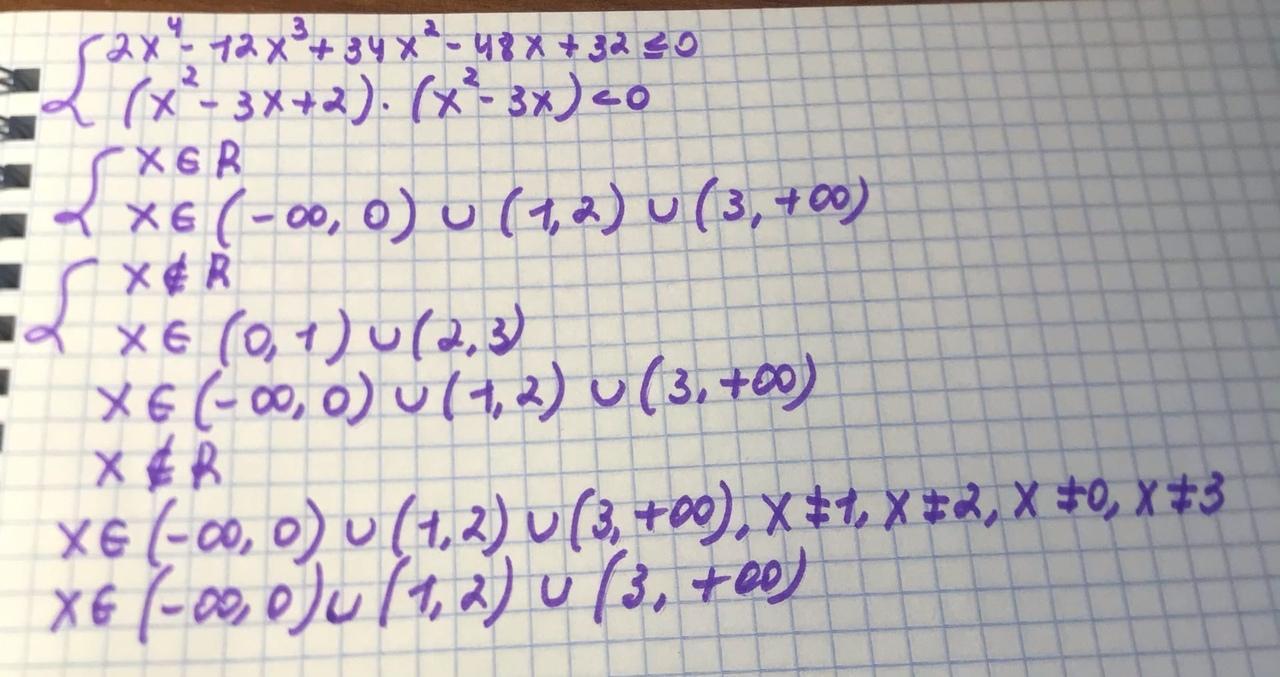 { 2x⁴ - 12x³ + 34x² - 48x + 32 ≤ 0
(x² - 3x + 2) · (x² - 3x) < 0
{ x ∈ R
x ∈ (-∞, 0) ∪ (1, 2) ∪ (3, +∞)
{ x ∉ R
x ∈ (0, 1) ∪ (2, 3)
x ∈ (-∞, 0) ∪ (1, 2) ∪ (3, +∞)
x ∉ R
x ∈ (-∞, 0) ∪ (1, 2) ∪ (3, +∞), x ≠ 1, x ≠ 2, x ≠ 0, x ≠ 3
x ∈ (-∞, 0) ∪ (1, 2) ∪ (3, +∞)